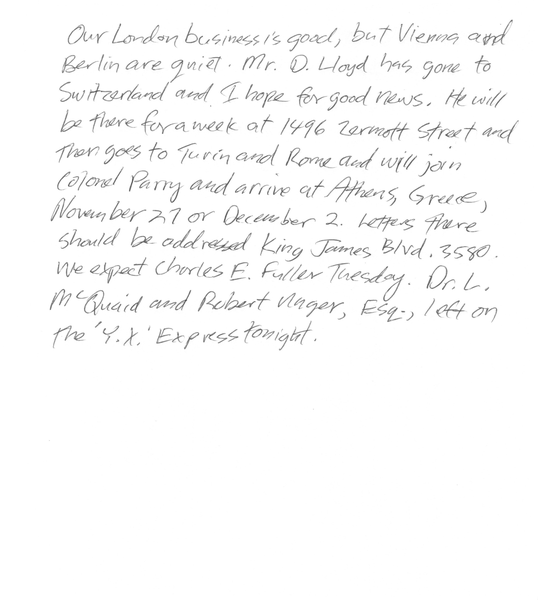 Our London business is good, but Vienna and
Berlin are quiet. Mr. D. Lloyd has gone to
Switzerland and I hope for good news. He will
be there for a week at 1496 Zermott Street and
then goes to Turin and Rome and will join
Colonel Parry and arrive at Athens, Greece,
November 27 or December 2. Letters there
should be addressed King James Blvd. 3580.
We expect Charles E. Fuller Tuesday. Dr. L.
McQuaid and Robert Unger, Esq., left on
the 'Y.X.' Express tonight.